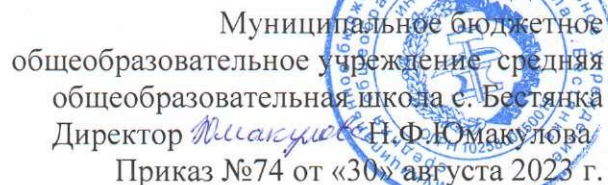 Муниципальное бюджетное
общеобразовательное учреждение средняя
общеобразовательная школа с. Бестянка
Директор Юмакулова Н.Ф.Юмакулова
Приказ №74 от «30» августа 2023 г.